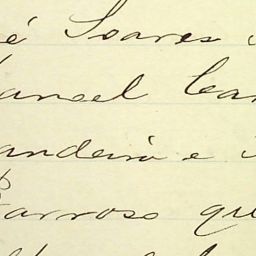 é Soares
anoel Car
andeira e
Barroso que